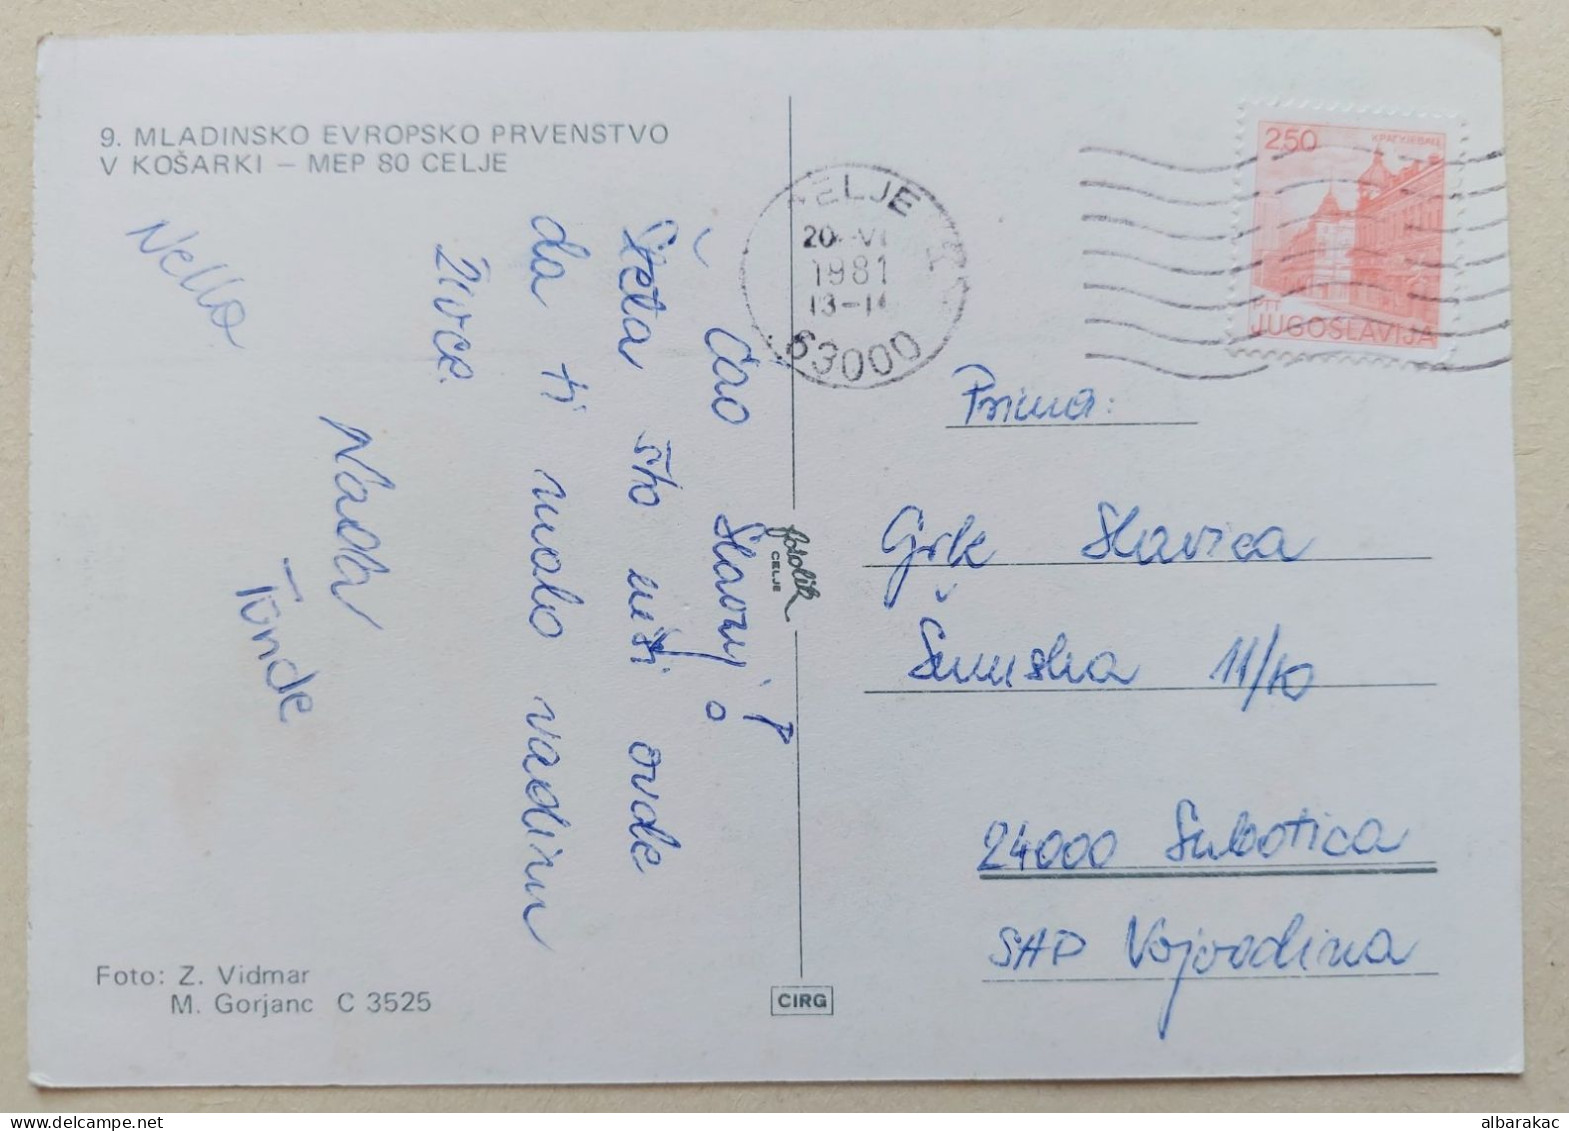 9. MLADINSKO EVROPSKO PRVENSTVO
V KOŠARKI – MEP 80 CELJE
Ćao Slavuj
Šteta što nisi ovde
da ti malo vadim
živce.
Nada
Tünde
Nello
Foto: Z. Vidmar
M. Gorjanc C 3525
fotolik
CELJE
CIRG
CELJE
1981
63000
2.50
PTT
JUGOSLAVIJA
Prima:
Grk Slavica
Šumska 11/10
24000 Subotica
SAP Vojvodina
albarakac